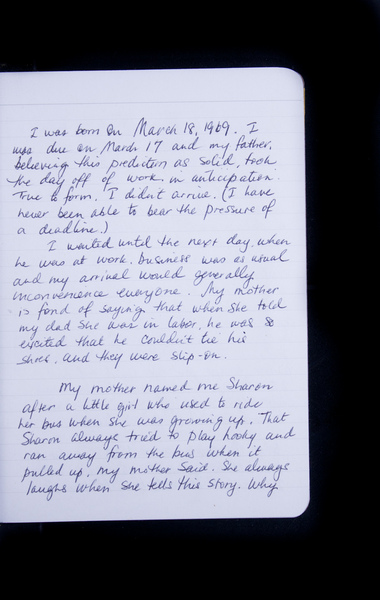 I was born on March 18, 1969. I
was due on March 17 and my father,
believing this prediction as solid, took
the day off of work in anticipation.
True to form, I didn't arrive. (I have
never been able to bear the pressure of
a deadline.)
I waited until the next day, when
he was at work, business was as usual
and my arrival would generally
inconvenience everyone. My mother
is fond of saying that when she told
my dad she was in labor, he was so
excited that he couldn't tie his
shoes, and they were slip-on.
My mother named me Sharon
after a little girl who used to ride
her bus when she was growing up. That
Sharon always tried to play hooky and
ran away from the bus when it
pulled up, my mother said. She always
laughs when she tells this story. Why